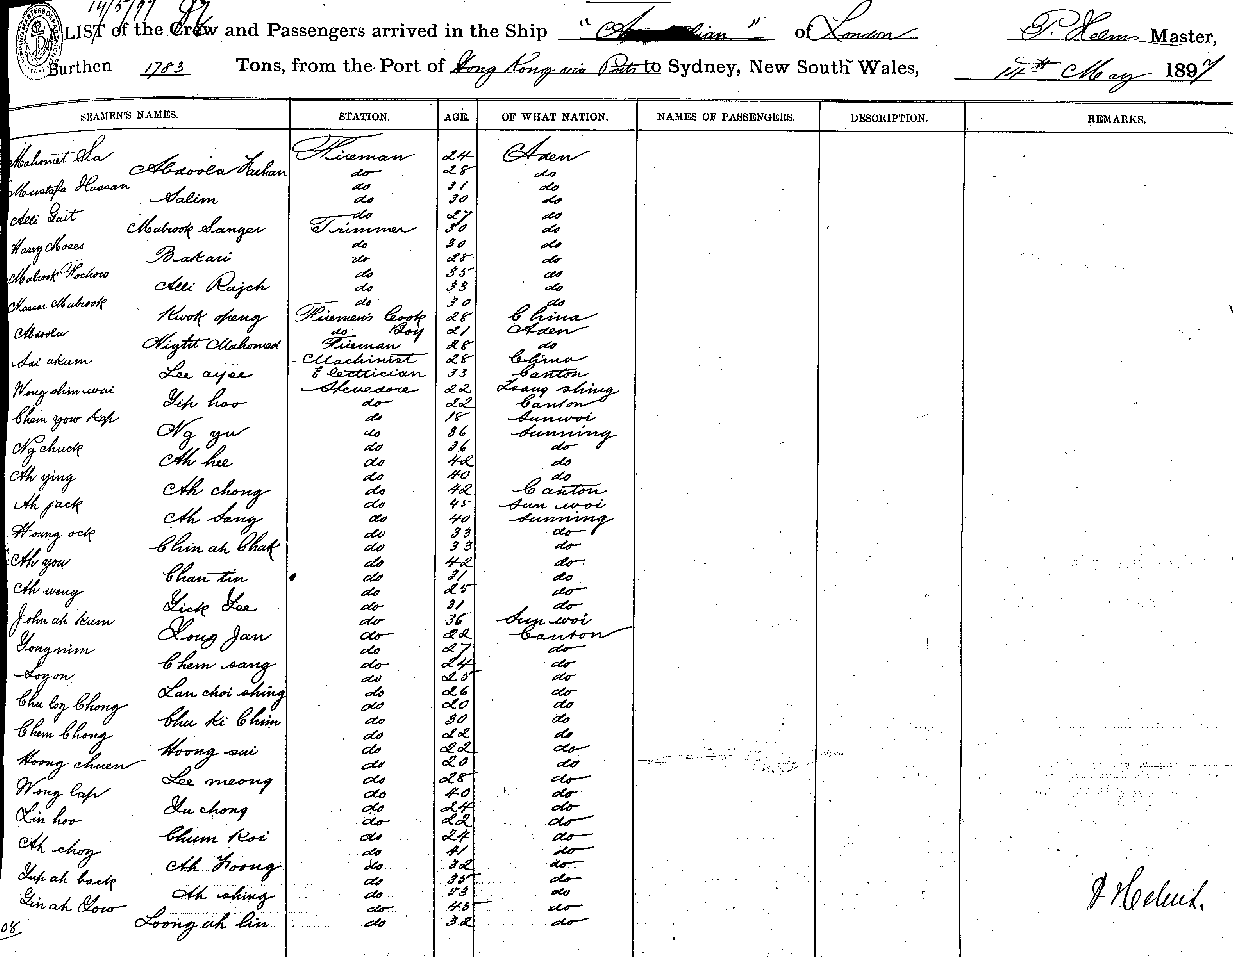 14/5/97 82
LIST of the Crew and Passengers arrived in the Ship " lian" of London P. Helms Master,
Burthen 1783 Tons, from the Port of Hong Kong via Ports to Sydney, New South Wales, 14th May 1897
SEAMEN'S NAMES. STATION. AGE. OF WHAT NATION. NAMES OF PASSENGERS. DESCRIPTION. REMARKS.
Mahomet Fireman 24 Aden
Abdoola Kuhan do 28 do
Mustafa Hassan do 31 do
Salim do 30 do
Alli Gait do 27 do
Mabrook Sanger Trimmer 30 do
Harry Moses do 30 do
Bakari do 28 do
Mabrook do 35 do
Alli Rajch do 33 do
Mabrook do 30 do
Kwok Firemen's Cook 28 China
Moola do Boy 21 Aden
Mahomed Fireman 28 do
Sai akum Machinist 28 China
Lee ayee Electrician 33 Canton
Wong chin woi Stevedore 22 shing
Yip hoo do 22 Canton
Chem yow kap do 18 Sunwoi
Ng yu do 36 Sunning
Ng chuck do 36 do
Ah hee do 42 do
Ah ying do 40 do
Ah chong do 42 Canton
Ah jack do 45 Sun woi
Ah Sang do 40 Sunning
Woung ock do 33 do
Chin ah Chak do 33 do
Ah you do 42 do
Chan tin do 31 do
Ah wong do 25 do
Yick Lee do 31 do
John ah kum do 36 Sun woi
Long Jan do 22 Canton
Yong nim do 27 do
Chem sang do 24 do
Loy on do 25 do
Lan choi shing do 26 do
Chu loy Chong do 20 do
Chu ki Chim do 30 do
Chem Chong do 22 do
Hoong sui do 22 do
Hoong chuen do 20 do
Lee meong do 28 do
Wong lap do 40 do
Yu chong do 24 do
Lin hoo do 22 do
Chum Koi do 24 do
Ah choy do 41 do
Ah Foong do 32 do
Yup ah back do 35 do
Ah shing do 53 do
Yin ah Yow do 45 do
Loong ah lin do 32 do
P Helms.